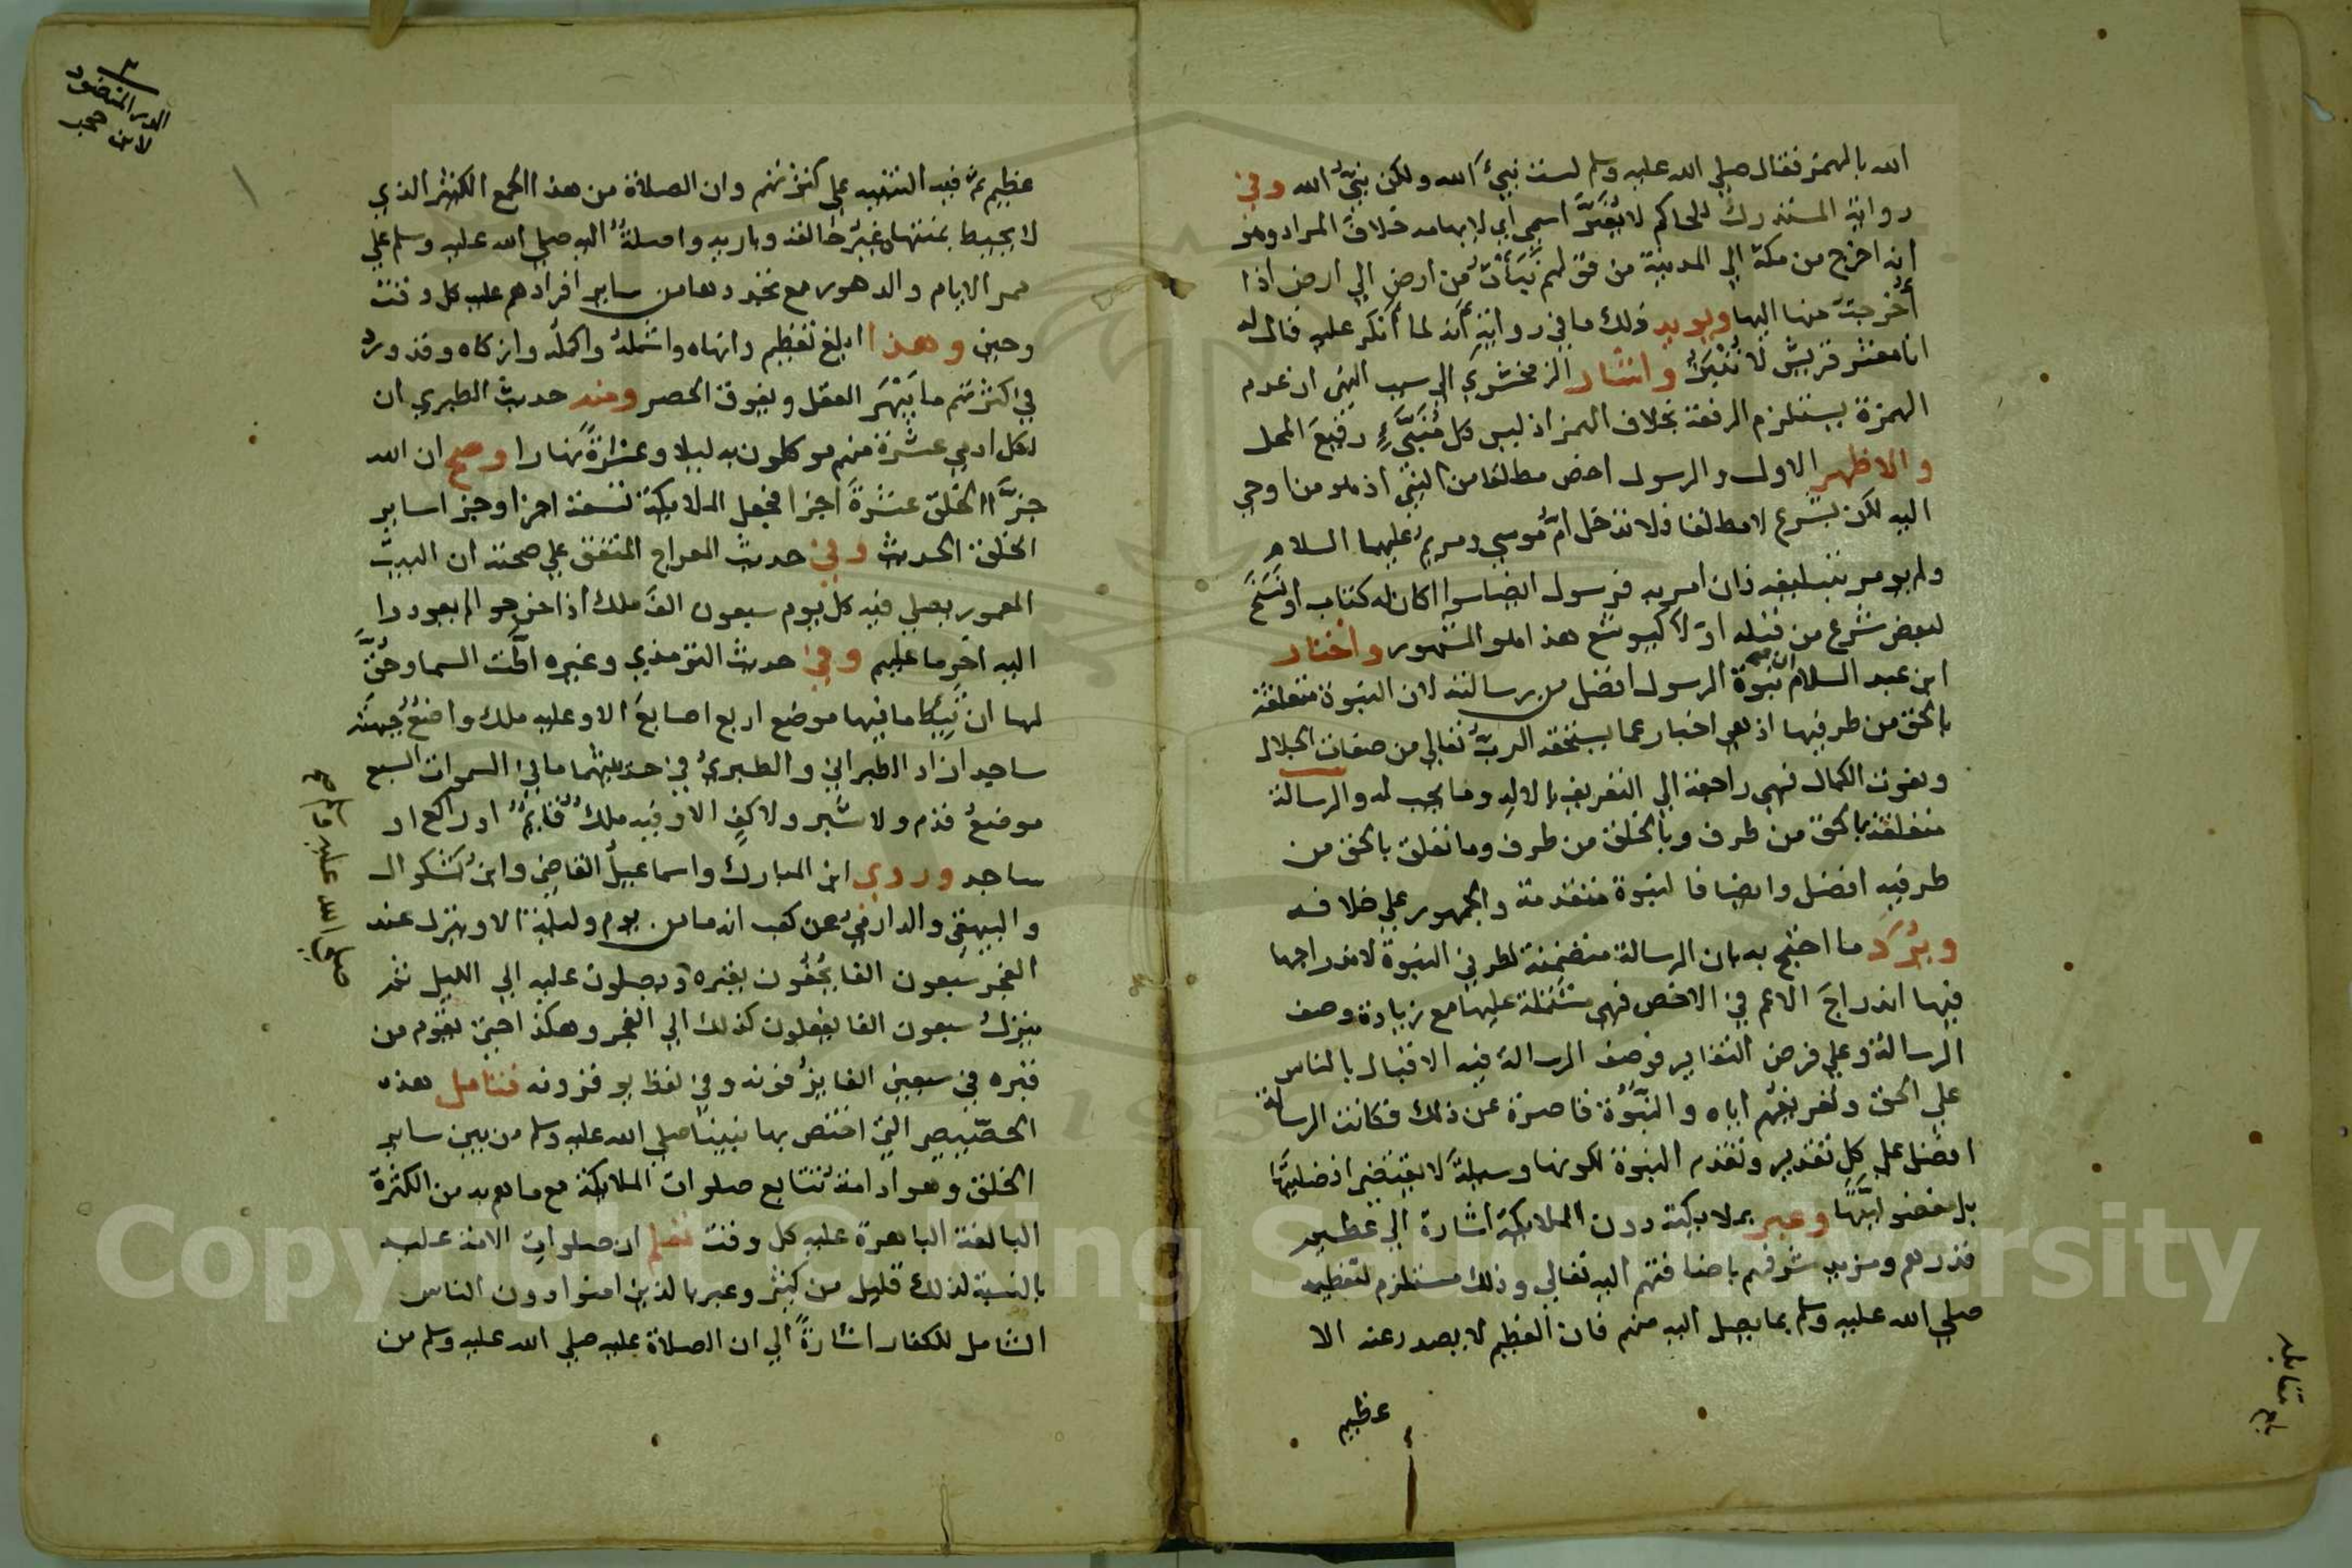 الله بالهمز فقال صلي الله عليه وسلم لست نبيءَ الله ولكن نبيُّ الله وفي
رواية المستدرك للحاكم لا تُغيِّر اسمي اي لايهامه خلاف المراد وهو
انه اخرج من مكة الي المدينة من قولهم نَبَأْتُ من ارض الي ارض اذا
أُخرجت منها اليها ويويد ذلك ما في رواية أنه لما أنكر عليه قال له
انا معشر قريش لا نُنْبِرُ واشار الزمخشري الي سبب النهي اذ عدم
الهمزة يستلزم الرفعة بخلاف الهمز اذ ليس كل مُنَبَّءٍ رفيعَ المحل
والاظهر الاول والرسول اخص مطلقا من النبي اذ هو من اوحي
اليه لكن بشرع لا مطلقا فلا تدخل امُّ موسي ومريمُ عليهما السلام
ولم يومر بتبليغه فان امر به فرسول ايضا سوا اكان له كتاب او نَسْخ
لبعض شرع من قبله اوْ لا كيوشع هذا هو المشهور واختار
ابن عبد السلام ان نبوة الرسول افضل من رسالته لان النبوة متعلقة
بالحق من طرفيها اذ هي اخبار عما يستحقه الربُّ تعالي من صفات الجلال
ونعوت الكمال فهي راجعة الي التعريف بالاله وما يجب له والرسالة
متعلقة بالحق من طرف وبالخلق من طرف وما تعلق بالحق من
طرفيه افضل وايضا فالنبوة متقدمة والجمهور علي خلافه
ويُرَدّ ما احتج به بان الرسالة متضمنة لطرفي النبوة لاندراجها
فيها اندراجَ الاعم في الاخص فهي مشتملة عليها مع زيادة وصف
الرسالة وعلي فرض التغاير فوصف الرسالة فيه الاقبال بالناس
علي الحق وتعريفهم اياه والنبوَّة قاصرة عن ذلك فكانت الرسالة
افضل علي كل تقدير وتقدم النبوة لكونها وسيلةً لا يقتضي افضليتها
بل مفضوليتَّها وعبر بملايكته دون الملايكة اشارة الي عظيم
قدرهم ومزيد شرفهم باضافتهم اليه تعالي وذلك مستلزم لتعظيمه
صلي الله عليه وسلم بما يصل اليه منهم فان العظيم لا يصدر عنه الا
عظيم
بلغ مقابله
٣
الدر المنضود
لابن حجر
عظيم ثم فيه التنبيه علي كثرتهم وان الصلاة من هذا الجمع الكثير الذي
لا يحيط بمنتهاه غيرُ خالقه وباريه واصلةٌ اليه صلي الله عليه وسلم علي
ممر الايام والدهور مع تجددها من ساير افرادهم عليه كل وقت
وحين وهذا ابلغ تعظيم وانهاه واشملُه واكملُه وازكاه وقد ورد
في كثرتهم ما يَبْهَر العقل ويفوق الحصر ومنه حديث الطبري ان
لكل ادمي عشرة منهم موكلون به ليلا وعشرةً نهارا وصح ان الله
جزَّا الخلق عشرةَ اجزا فجعل الملايكة تسعة اجزا وجزا ساير
الخلق الحديث وفي حديث المعراج المتفق علي صحته ان البيت
المعمور يصلي فيه كل يوم سبعون الفَ ملك اذا خرجوا لم يعودوا
اليه اخر ما عليهم وفي حديث الترمذي وغيره اطَّت السما وحُقَّ
لها ان تَئِطَّ ما فيها موضع اربع اصابعَ الا وعليه ملك واضعٌ جبهته
ساجدا زاد الطبراني والطبريُّ في حديثيهما ما في السموات السبع
موضعُ قدم ولا شبر ولا كف الا وفيه ملك قايمٌ او راكع او
ساجد وروي ابن المبارك واسماعيلُ القاضي وابن بشكوال
والبيهقي والدارميُّ عن كعب انه ما من يوم وليلة الا وينزل عند
الفجر سبعون الفا يَحُفُّون بقبره ويصلون عليه الي الليل ثم
ينزل سبعون الفا يفعلون كذلك الي الفجر وهكذا حتي يقوم من
قبره في سبعين الفا يزُفونه وفي لفظ يوقرونه فتامل هذه
الخصيصي التي اختص بها نبينا صلي الله عليه وسلم من بين ساير
الخلق وهو ادامة تتابع صلوات الملايكة مع ما هم به من الكثرة
البالغة الباهرة عليه كل وقت تعلم ان صلوات الامة عليه
بالنسبة لذلك قليل من كثير وعبر بالذين امنوا دون الناس
الشامل للكفار اشارةً الي ان الصلاة عليه صلي الله عليه وسلم من
Copyright © King Saud University
195